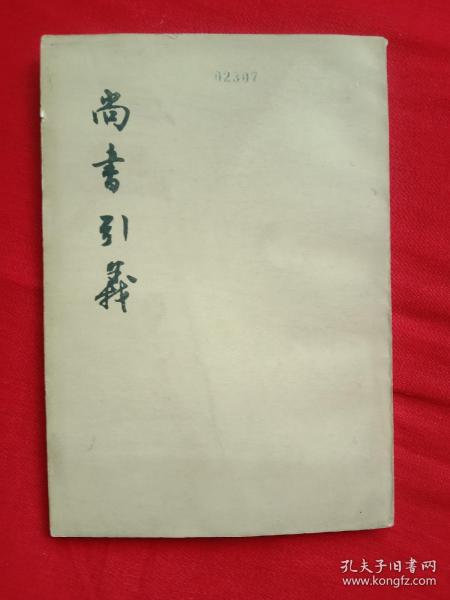 02307
尚書引義
孔夫子旧书网
www.kongfz.com